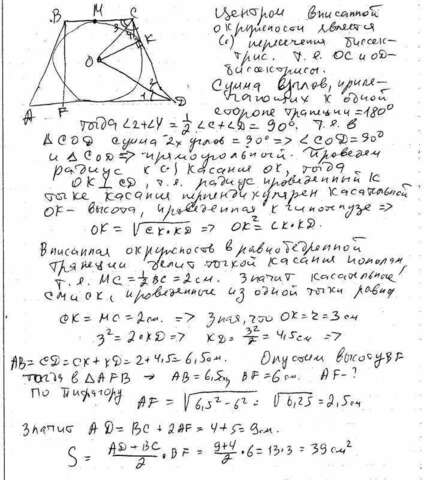 B M C
K
O
A F D
Центром вписанной
окружности является
(·) пересечения биссек-
трис. т.е. ОС и ОD-
биссектрисы.
Сумма углов, приле-
гающих к одной
стороне трапеции =180°
тогда ∠2+∠4 = 1/2 ∠C+∠D = 90°. т.е. в
△COD сумма 2х углов = 90° => ∠COD=90°
и △COD => прямоугольный. Проведем
радиус к (·) касания ОК, тогда
OK⊥CD, т.е. радиус проведенный к
точке касания перпендикулярен касательной
ОК- высота, проведенная к гипотенузе =>
OK = √CK·KD => OK² = CK·KD.
Вписанная окружность в равнобедренной
трапеции делит точкой касания пополам
т.е. MC = 1/2 BC = 2см. Значит касательные
СМ и СК, проведенные из одной точки равны
CK = MC = 2см. => Зная, что OK = r = 3см
3² = 2·KD => KD = 3²/2 = 4,5см =>
AB = CD = CK+KD = 2+4,5 = 6,5см. Опустим высоту BF
тогда в △AFB → AB = 6,5см, BF = 6см. AF-?
По Пифагору AF = √6,5²-6² = √6,25 = 2,5см
Значит AD = BC + 2AF = 4+5 = 9см.
S = AD+BC/2 · BF = 9+4/2 · 6 = 13·3 = 39см²